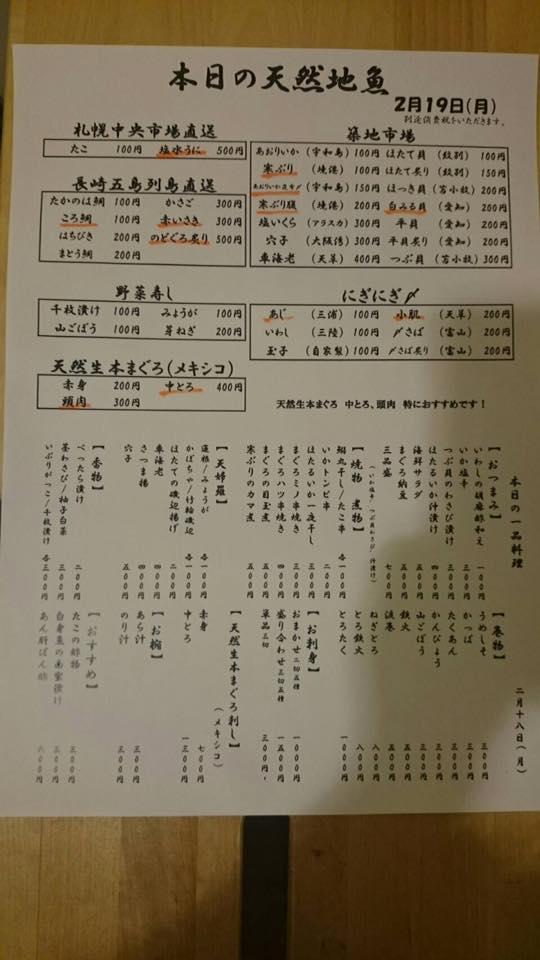 本日の天然地魚
2月19日(月)
別途消費税をいただきます。
札幌中央市場直送
たこ 100円 塩水うに 500円
長崎五島列島直送
たかのは鯛 100円 かさご 300円
ころ鯛 100円 赤いさき 300円
はちびき 200円 のどぐろ炙り 500円
まとう鯛 200円
築地市場
あおりいか (宇和島) 100円 ほたて貝 (紋別) 100円
寒ぶり (焼津) 100円 ほたて炙り (紋別) 150円
(宇和島) 150円 ほっき貝 (苫小牧) 200円
寒ぶり腹 (焼津) 200円 白みる貝 (愛知) 200円
塩いくら (アラスカ) 300円 平貝 (愛知) 200円
穴子 (大阪湾) 300円 平貝炙り (愛知) 200円
車海老 (天草) 400円 つぶ貝 (苫小牧) 300円
野菜寿し
千枚漬け 100円 みょうが 100円
山ごぼう 100円 芽ねぎ 200円
にぎにぎ〆
あじ (三浦) 100円 小肌 (天草) 200円
いわし (三陸) 100円 〆さば (富山) 200円
玉子 (自家製) 100円 〆さば炙り (富山) 200円
天然生本まぐろ(メキシコ)
赤身 200円 中とろ 400円
頭肉 300円
天然生本まぐろ 中とろ、頭肉 特におすすめです!
本日の一品料理
二月十八日(月)
【おつまみ】
いわしの胡麻酢和え 一００円
いか塩辛 三００円
つぶ貝のわさび漬け 三００円
ほたるいか沖漬け
海鮮サラダ
まぐろ納豆 五００円
三品盛 七００円
(いか塩辛/つぶ貝わさび/沖漬け)
【焼物 煮物】
鯛丸干し/たこ串 各一００円
いかトンビ串 二００円
ほたるいか一夜干し 三００円
まぐろミノ串焼き 三００円
まぐろハツ串焼き
まぐろの目玉煮 五００円
寒ぶりのカマ煮 五００円
【天婦羅】
蓮根/みょうが 各一００円
かぼちゃ/竹輪磯辺 各一００円
ほたての磯辺揚げ
車海老 四００円
さつま揚 四００円
穴子 五００円
【香物】
べったら漬け 二００円
茎わさび/柚子白菜 各三００円
いぶりがっこ/千枚漬け 各三００円
【巻物】
うめしそ 三００円
かっぱ 三００円
たくあん 三００円
かんぴょう 三００円
山ごぼう
鉄火 五００円
涙巻 五００円
ねぎとろ 八００円
とろ鉄火 八００円
とろたく 一０００円
【お刺身】
おまかせ 二切五種 一０００円
盛り合わせ 三切五種 一五００円
単品 三切 三００円~
【天然生本まぐろ刺し】
(メキシコ)
赤身 七００円
中とろ 一三００円
【お椀】
あら汁 三００円
のり汁 三００円
【おすすめ】
たこの酢物 三００円
白身魚の南蛮漬け 三００円
あん肝ぽん酢 六００円